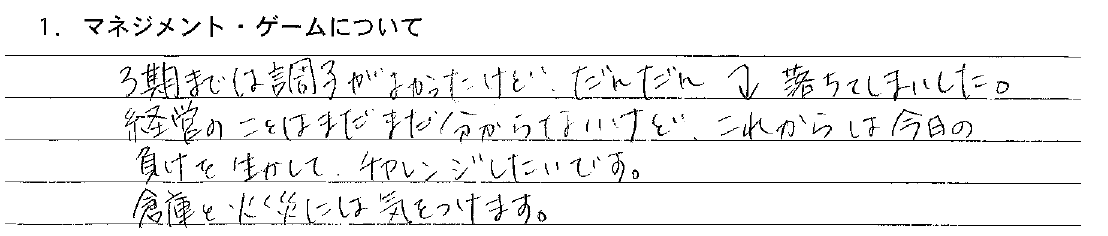 1. マネジメント・ゲームについて
3期までは調子がよかったけど、だんだん ↓ 落ちてしまいました。
経営のことはまだまだ分からないけど、これからは今日の
負けを生かして、チャレンジしたいです。
倉庫と火災には気をつけます。